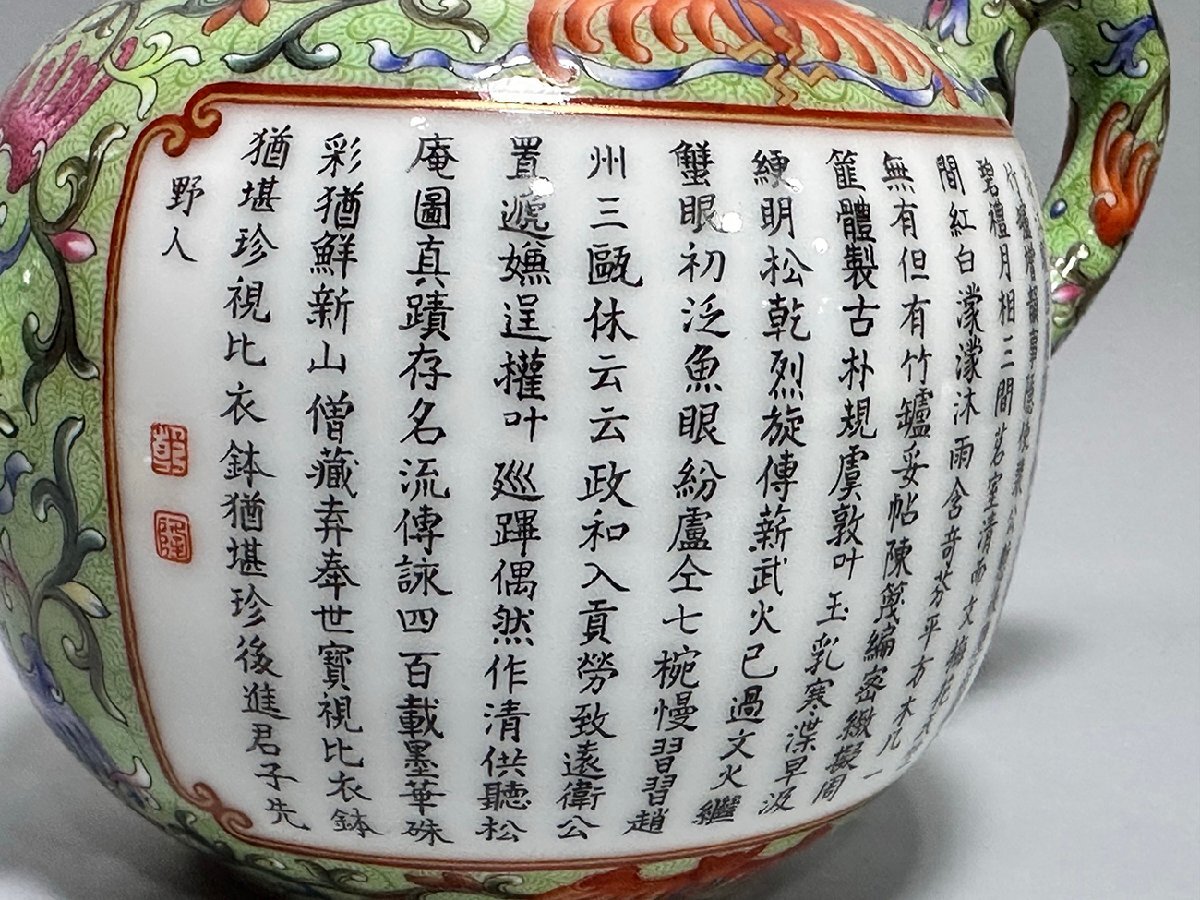 碧禮月相三間茗室清而文梅花
間紅白濛濛沐雨含奇芬平方木几一
無有但有竹鑪妥帖陳篾編密緻擬周
篚體製古朴規虞敦叶玉乳寒渫早汲
綆明松乾烈旋傳薪武火已過文火繼
蟹眼初泛魚眼紛盧仝七椀慢習習趙
州三甌休云云政和入貢勞致遠衛公
置遞嫵逞權叶巡蹕偶然作清供聽松
庵圖真蹟存名流傳詠四百載墨華硃
彩猶鮮新山僧藏弆奉世寶視比衣鉢
猶堪珍視比衣鉢猶堪珍後進君子先
野人
乾
隆